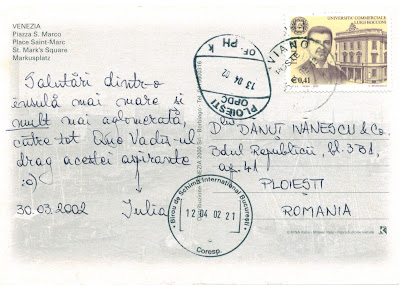 VENEZIA
Piazza S. Marco
Place Saint-Marc
St. Mark's Square
Markusplatz
UNIVERSITA' COMMERCIALE
LUIGI BOCCONI
€0,41
OF PH K
13 04 02
PLOIEȘTI
OPDC
Salutări dintr-o
insulă mai mare și
mult mai aglomerată,
către tot Quo Vadis-ul
drag acestei aspirante
:o)
30.03.2002 Iulia
Dlui DĂNUȚ IVĂNESCU & Co.
Bdul Republicii, bl. 331,
ap. 41
PLOIEȘTI
ROMANIA
Birou de Schimb Internațional București
12 04 02 21
Coresp.